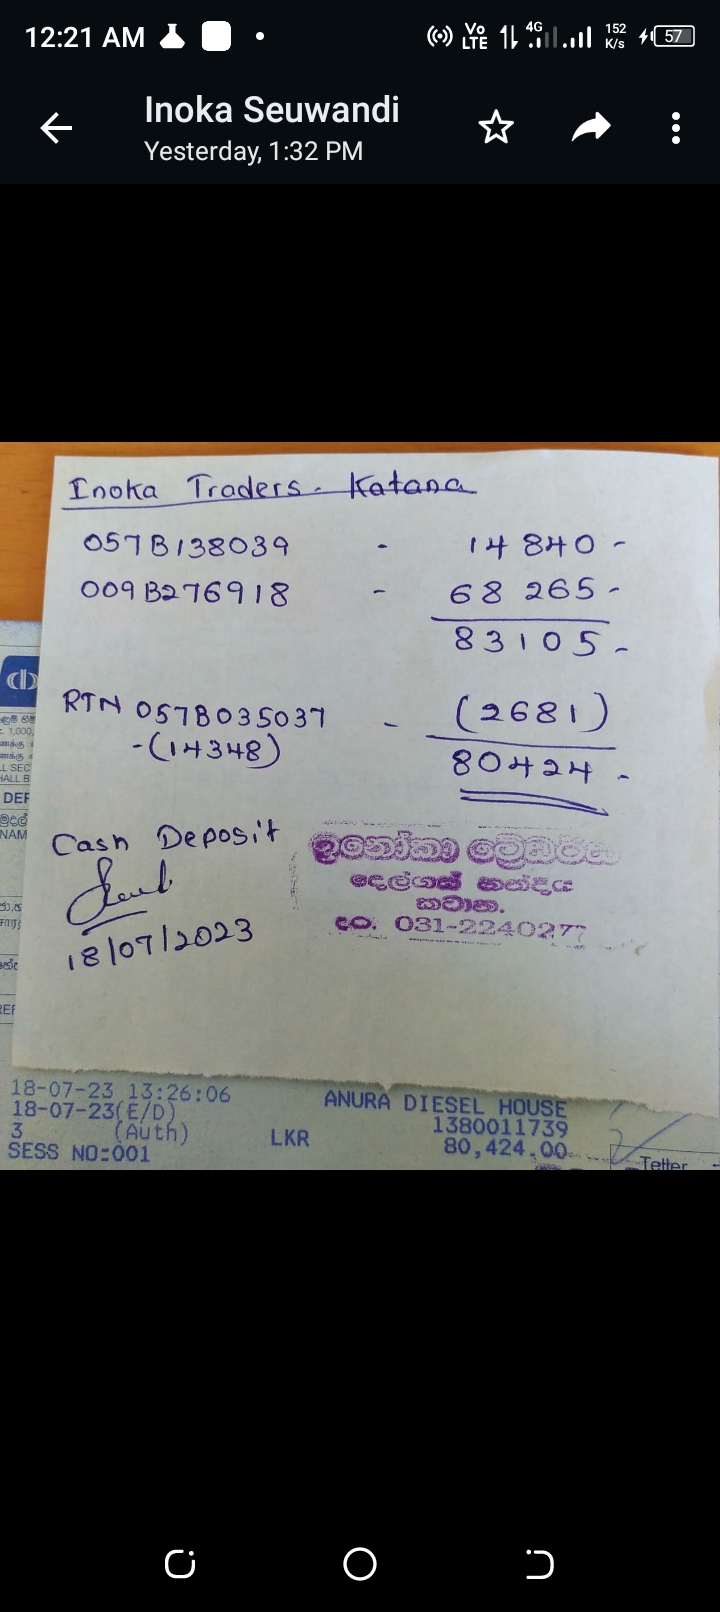 12:21 AM
Vo
LTE
4G
152
K/s
57
Inoka Seuwandi
Yesterday, 1:32 PM
Inoka Traders - Katana
057B138039 - 14 840 -
009B276918 - 68 265 -
83105 -
RTN 057B035037 - (2681)
-(14348)
80424 -
Cash Deposit
18/07/2023
ඉනෝකා ට්‍රේඩර්ස්
දෙල්ගස් හන්දිය
කටාන.
දු.ක. 031-2240277
1,000,
LL SEC
HALL B
DEF
NAM
REF
18-07-23 13:26:06
18-07-23(E/D)
3 (Auth)
SESS NO:001
ANURA DIESEL HOUSE
1380011739
LKR 80,424.00
Teller